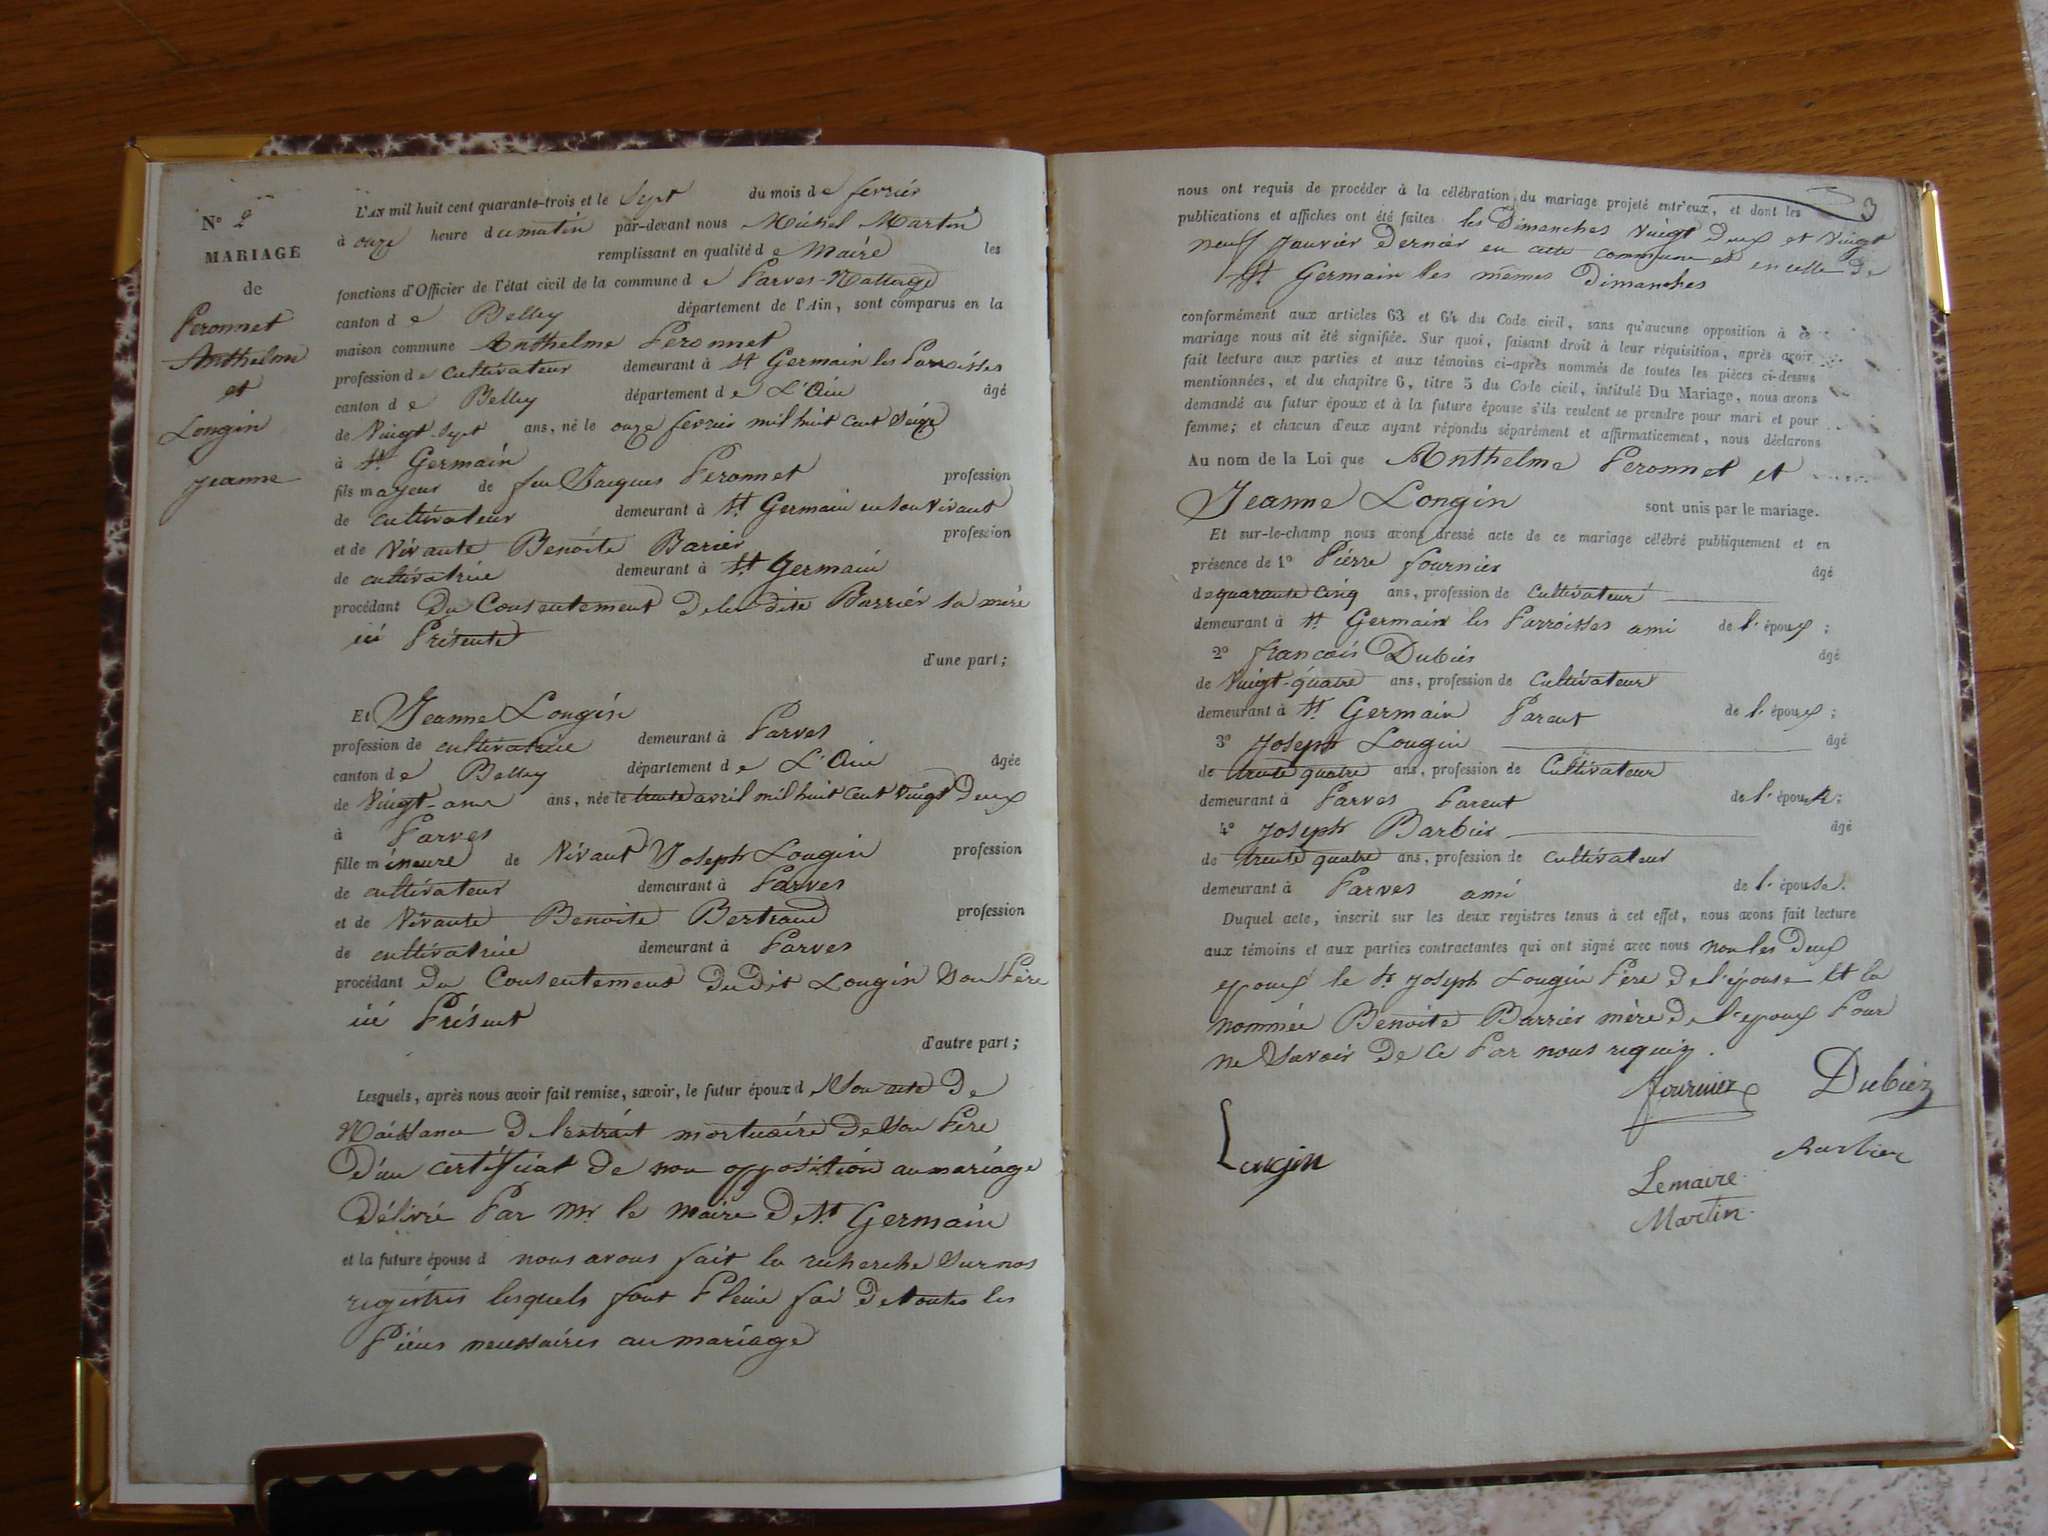 N° 2
MARIAGE
de
Peronnet
Anthelme
et
Longin
Jeanne
L'AN mil huit cent quarante-trois et le Sept du mois de fevrier
à onze heure du matin par-devant nous Michel Martin
remplissant en qualité de Maire les
fonctions d'Officier de l'état civil de la commune de Parves-Nattage
canton de Belley département de l'Ain, sont comparus en la
maison commune Anthelme Peronnet
profession de cultivateur demeurant à St Germain les Parroisses
canton de Belley département de L'Ain âgé
de Vingt-Sept ans, né le onze fevrier mil huit cent Seize
à St Germain
fils mayeur de feu Jacques Peronnet profession
de cultivateur demeurant à St Germain en son vivant
et de Vivante Benoite Barier profession
de cultivatrice demeurant à St Germain
procédant Du Consentement De la dite Barrier sa mère
ici Présente
d'une part;
Et Jeanne Longin
profession de cultivatrice demeurant à Parves
canton de Belley département de L'Ain âgée
de Vingt-ans ans, née le trente avril mil huit cent vingt Deux
à Parves
fille mineure de Vivant Joseph Longin profession
de cultivateur demeurant à Parves
et de Vivante Benoite Bertrand profession
de cultivatrice demeurant à Parves
procédant Du Consentement Du dit Longin Son Père
ici Présent
d'autre part;
Lesquels, après nous avoir fait remise, savoir, le futur époux de Son acte De
Naissance De l'extrait mortuaire De Son Père
D'un certificat de non opposition au mariage
Délivré Par Mr le Maire De St Germain
et la future épouse d nous avons fait la recherche Sur nos
registres lesquels font Pleine foi De toutes les
Pièces necessaires au mariage
3
nous ont requis de procéder à la célébration du mariage projeté entr'eux, et dont les
publications et affiches ont été faites les Dimanches Vingt Deux et Vingt
neuf Janvier Dernier en cette commune et en celle De
St Germain les mêmes Dimanches
conformément aux articles 63 et 64 du Code civil, sans qu'aucune opposition à ce
mariage nous ait été signifiée. Sur quoi, faisant droit à leur réquisition, après avoir
fait lecture aux parties et aux témoins ci-après nommés de toutes les pièces ci-dessus
mentionnées, et du chapitre 6, titre 5 du Code civil, intitulé Du Mariage, nous avons
demandé au futur époux et à la future épouse s'ils veulent se prendre pour mari et pour
femme; et chacun d'eux ayant répondu séparément et affirmativement, nous déclarons
Au nom de la Loi que Anthelme Peronnet et
Jeanne Longin sont unis par le mariage.
Et sur-le-champ nous avons dressé acte de ce mariage célébré publiquement et en
présence de 1° Pierre fournier âgé
de quarante cinq ans, profession de Cultivateur
demeurant à St Germain les Parroisses ami de l'époux;
2° francois Dubier âgé
de Vingt-quatre ans, profession de Cultivateur
demeurant à St Germain Parent de l'époux;
3° Joseph Longin âgé
de trente quatre ans, profession de Cultivateur
demeurant à Parves Parent de l'épouse;
4° Joseph Barbier âgé
de trente quatre ans, profession de cultivateur
demeurant à Parves ami de l'épouse.
Duquel acte, inscrit sur les deux registres tenus à cet effet, nous avons fait lecture
aux témoins et aux parties contractantes qui ont signé avec nous non les Deux
epoux le Sr Joseph Longin Père De l'épouse Et la
nommée Benoite Barrier mère De l'epoux Pour
ne Savoir De ce Par nous requis.
fournier Dubiez
Longin Barbier
Lemaire
Martin